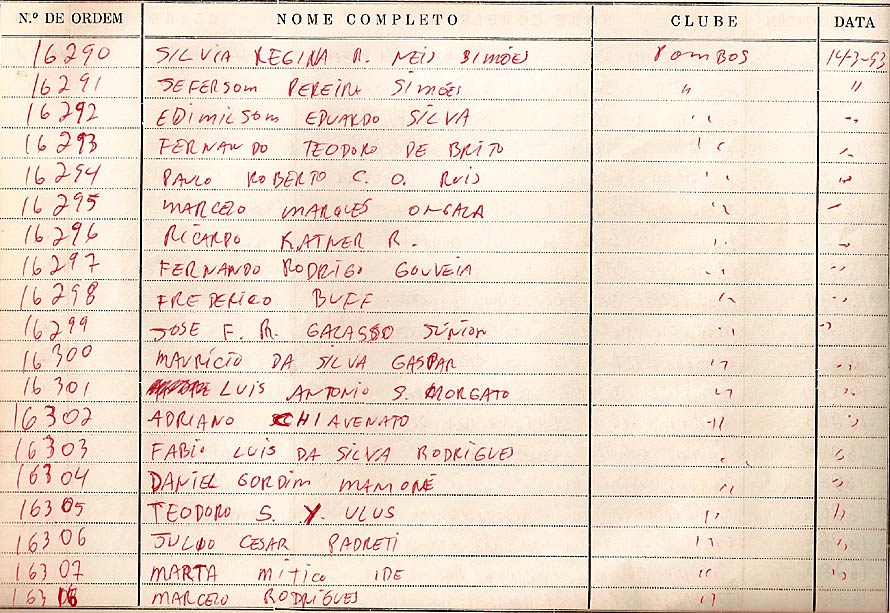 N.º DE ORDEM NOME COMPLETO CLUBE DATA
16290 SILVIA REGINA R. NEIS SIMÕES POMBOS 14-3-93
16291 JEFERSOM PEREIRA SIMÕES " "
16292 EDIMILSOM EDUARDO SILVA " "
16293 FERNANDO TEODORO DE BRITO " "
16294 PAULO ROBERTO C. O. RUIS " "
16295 MARCELO MARQUES ONGALA " "
16296 RICARDO KATNER R. " "
16297 FERNANDO RODRIGO GOUVEIA " "
16298 FREDERICO BUFF " "
16299 JOSE F. R. GALASSO JÚNIOR " "
16300 MAURÍCIO DA SILVA GASPAR " "
16301 LUIS ANTONIO S. MORGATO " "
16302 ADRIANO SCHIAVENATO " "
16303 FABIO LUIS DA SILVA RODRIGUES " "
16304 DANIEL GORDIM MAMONÉ " "
16305 TEODORO S. Y. ULUS " "
16306 JULIO CESAR PADRETI " "
16307 MARTA MITICO IDE " "
MARCELO RODRIGUES "